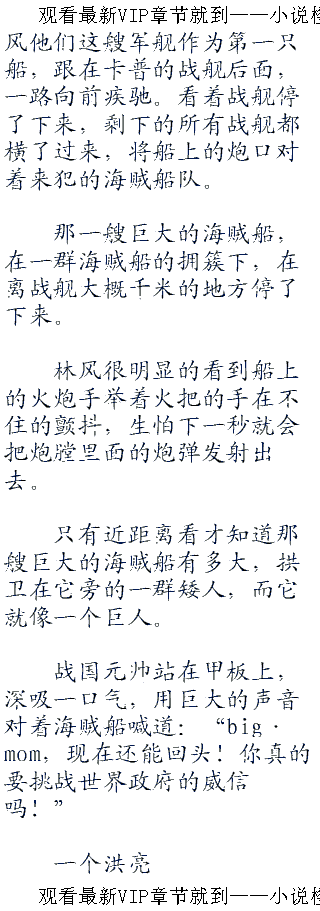 观看最新VIP章节就到——小说检
风他们这艘军舰作为第一只
船，跟在卡普的战舰后面，
一路向前疾驰。看着战舰停
了下来，剩下的所有战舰都
横了过来，将船上的炮口对
着来犯的海贼船队。
那一艘巨大的海贼船，
在一群海贼船的拥簇下，在
离战舰大概千米的地方停了
下来。
林风很明显的看到船上
的火炮手举着火把的手在不
住的颤抖，生怕下一秒就会
把炮膛里面的炮弹发射出
去。
只有近距离看才知道那
艘巨大的海贼船有多大，拱
卫在它旁的一群矮人，而它
就像一个巨人。
战国元帅站在甲板上，
深吸一口气，用巨大的声音
对着海贼船喊道：“big·
mom，现在还能回头！你真的
要挑战世界政府的威信
吗！”
一个洪亮
观看最新VIP章节就到——小说检